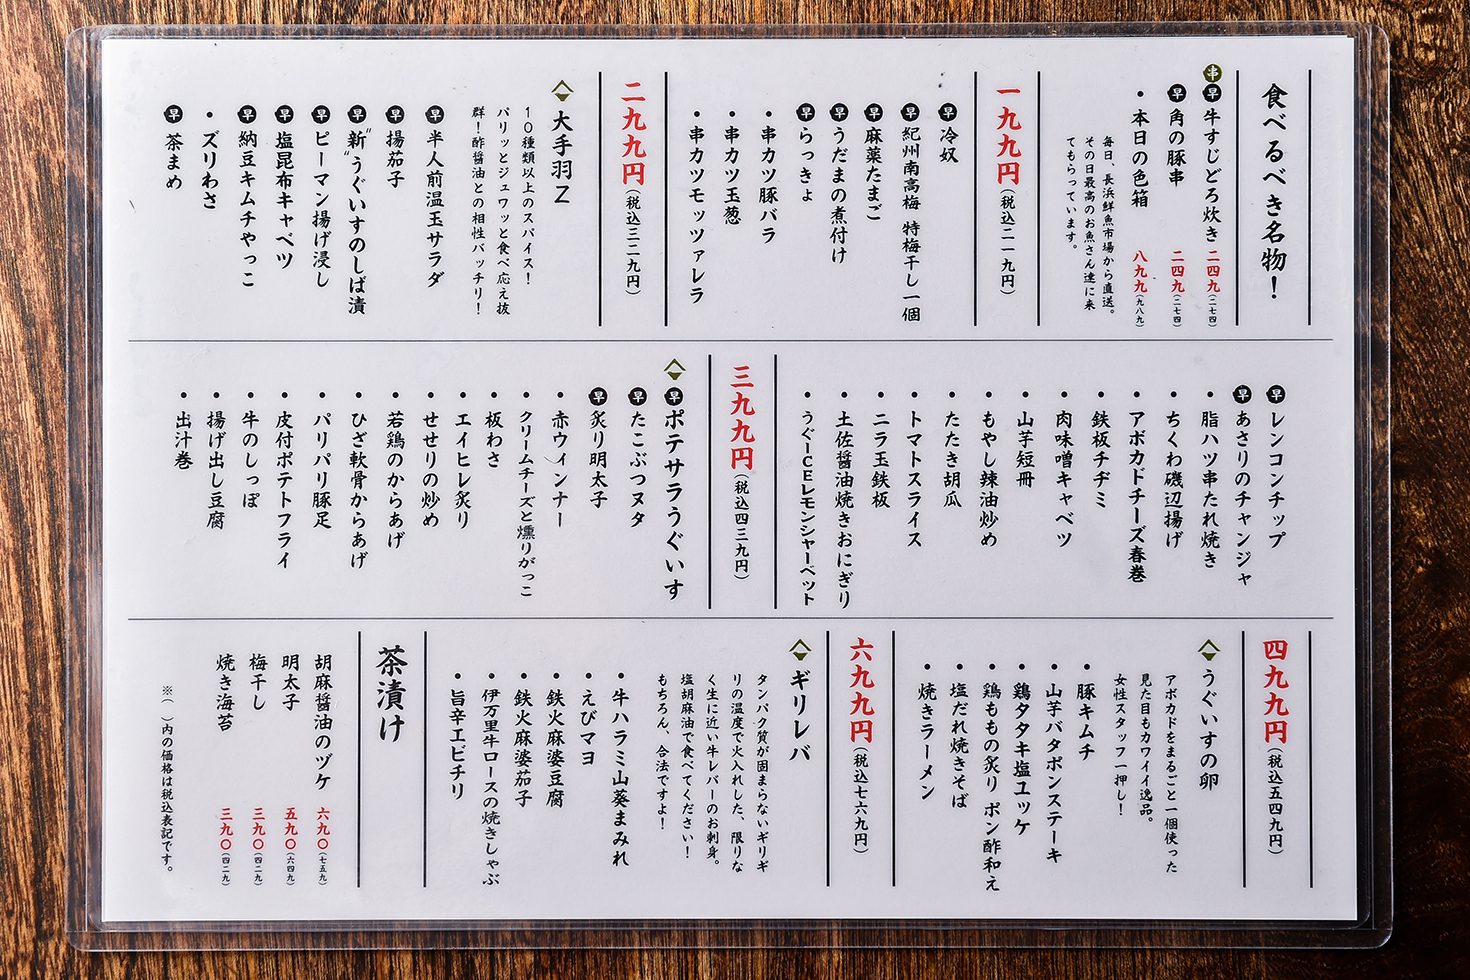 食べるべき名物！
串 早 牛すじどろ炊き 二四九（二七四）
早 角の豚串 二四九（二七四）
・本日の色箱 八九九（九八九）
毎日、長浜鮮魚市場から直送。
その日最高のお魚さん達に来
てもらっています。
一九九円（税込二一九円）
早 冷奴
早 紀州南高梅 特梅干し一個
早 麻薬たまご
早 うだまの煮付け
早 らっきょ
・串カツ豚バラ
・串カツ玉葱
・串カツモッツァレラ
二九九円（税込三二九円）
大手羽Z
10種類以上のスパイス！
パリッとジュワッと食べ応え抜
群！酢醤油との相性バッチリ！
早 半人前温玉サラダ
早 揚茄子
早 新〝うぐいすのしば漬〟
早 ピーマン揚げ浸し
早 塩昆布キャベツ
早 納豆キムチやっこ
・ズリわさ
早 茶まめ
早 レンコンチップ
早 あさりのチャンジャ
・脂ハツ串たれ焼き
・ちくわ磯辺揚げ
・アボカドチーズ春巻
・鉄板チヂミ
・肉味噌キャベツ
・山芋短冊
・もやし辣油炒め
・たたき胡瓜
・トマトスライス
・ニラ玉鉄板
・土佐醤油焼きおにぎり
・うぐーICEレモンシャーベット
三九九円（税込四三九円）
早 ポテサラうぐいす
早 たこぶつヌタ
早 炙り明太子
・赤ウィンナー
・クリームチーズと燻りがっこ
・板わさ
・エイヒレ炙り
・せせりの炒め
・若鶏のからあげ
・ひざ軟骨からあげ
・パリパリ豚足
・皮付ポテトフライ
・牛のしっぽ
・揚げ出し豆腐
・出汁巻
四九九円（税込五四九円）
うぐいすの卵
アボカドをまるごと一個使った
見た目もカワイイ逸品。
女性スタッフ一押し！
・豚キムチ
・山芋バタポンステーキ
・鶏タタキ塩ユッケ
・鶏ももの炙り ポン酢和え
・塩だれ焼きそば
・焼きラーメン
六九九円（税込七六九円）
ギリレバ
タンパク質が固まらないギリギ
リの温度で火入れした、限りな
く生に近い牛レバーのお刺身。
塩胡麻油で食べてください！
もちろん、合法ですよ！
・牛ハラミ山葵まみれ
・えびマヨ
・鉄火麻婆豆腐
・鉄火麻婆茄子
・伊万里牛ロースの焼きしゃぶ
・旨辛エビチリ
茶漬け
胡麻醤油のヅケ 六九〇（七五九）
明太子 五九〇（六四九）
梅干し 三九〇（四二九）
焼き海苔 三九〇（四二九）
※（ ）内の価格は税込表記です。